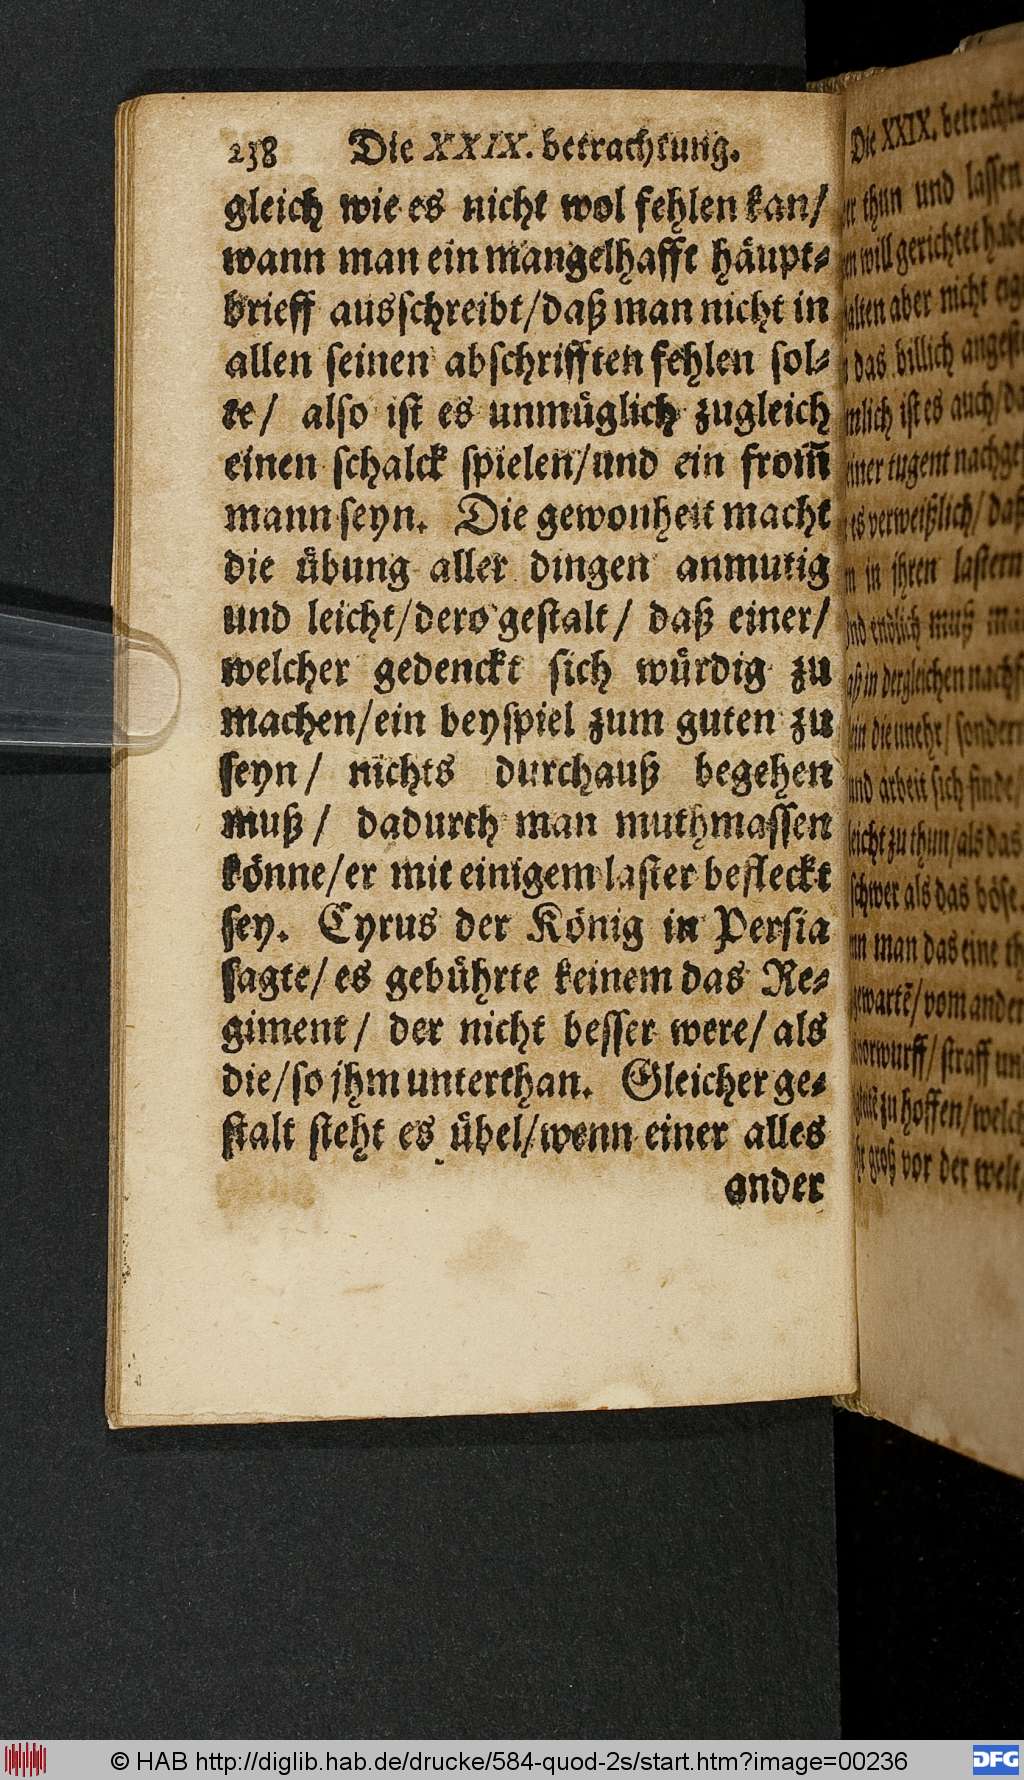 238 Die XXIX. betrachtung.
gleich wie es nicht wol fehlen kan/
wann man ein mangelhafft häupt-
brieff ausschreibt/daß man nicht in
allen seinen abschrifften fehlen sol-
te/ also ist es unmüglich zugleich
einen schalck spielen/und ein from̄
mann seyn. Die gewonheit macht
die übung aller dingen anmutig
und leicht/dero gestalt/ daß einer/
welcher gedenckt sich würdig zu
machen/ein beyspiel zum guten zu
seyn/ nichts durchauß begehen
muß/ dadurch man muthmassen
könne/er mit einigem laster befleckt
sey. Cyrus der König in Persia
sagte/es gebührte keinem das Re-
giment/ der nicht besser were/als
die/so jhm unterthan. Gleicher ge-
stalt steht es übel/wenn einer alles
ander
Die XXIX. betrachtu
thun und lassen
will gerichtet habe
alten aber nicht eig
das billich angest
mlich ist es auch/da
einer tugent nachge
es verweißlich/daß
in jhren lastern
und endlich muß ma
in dergleichen nachf
die unehr/ sondern
und arbeit sich finde/
leicht zu thun/als das
schwer als das böse.
man das eine th
gewartē/vom ander
vorwurff/straff un
zu hoffen/welch
groß vor der welt/
© HAB http://diglib.hab.de/drucke/584-quod-2s/start.htm?image=00236
DFG